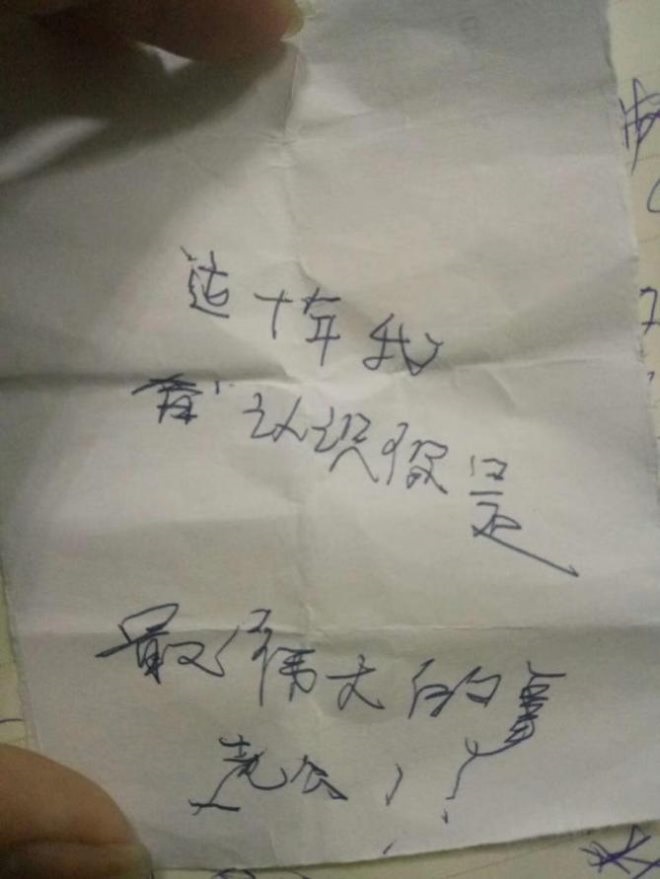 这十年我
认识你是
最伟大的事
老公，！